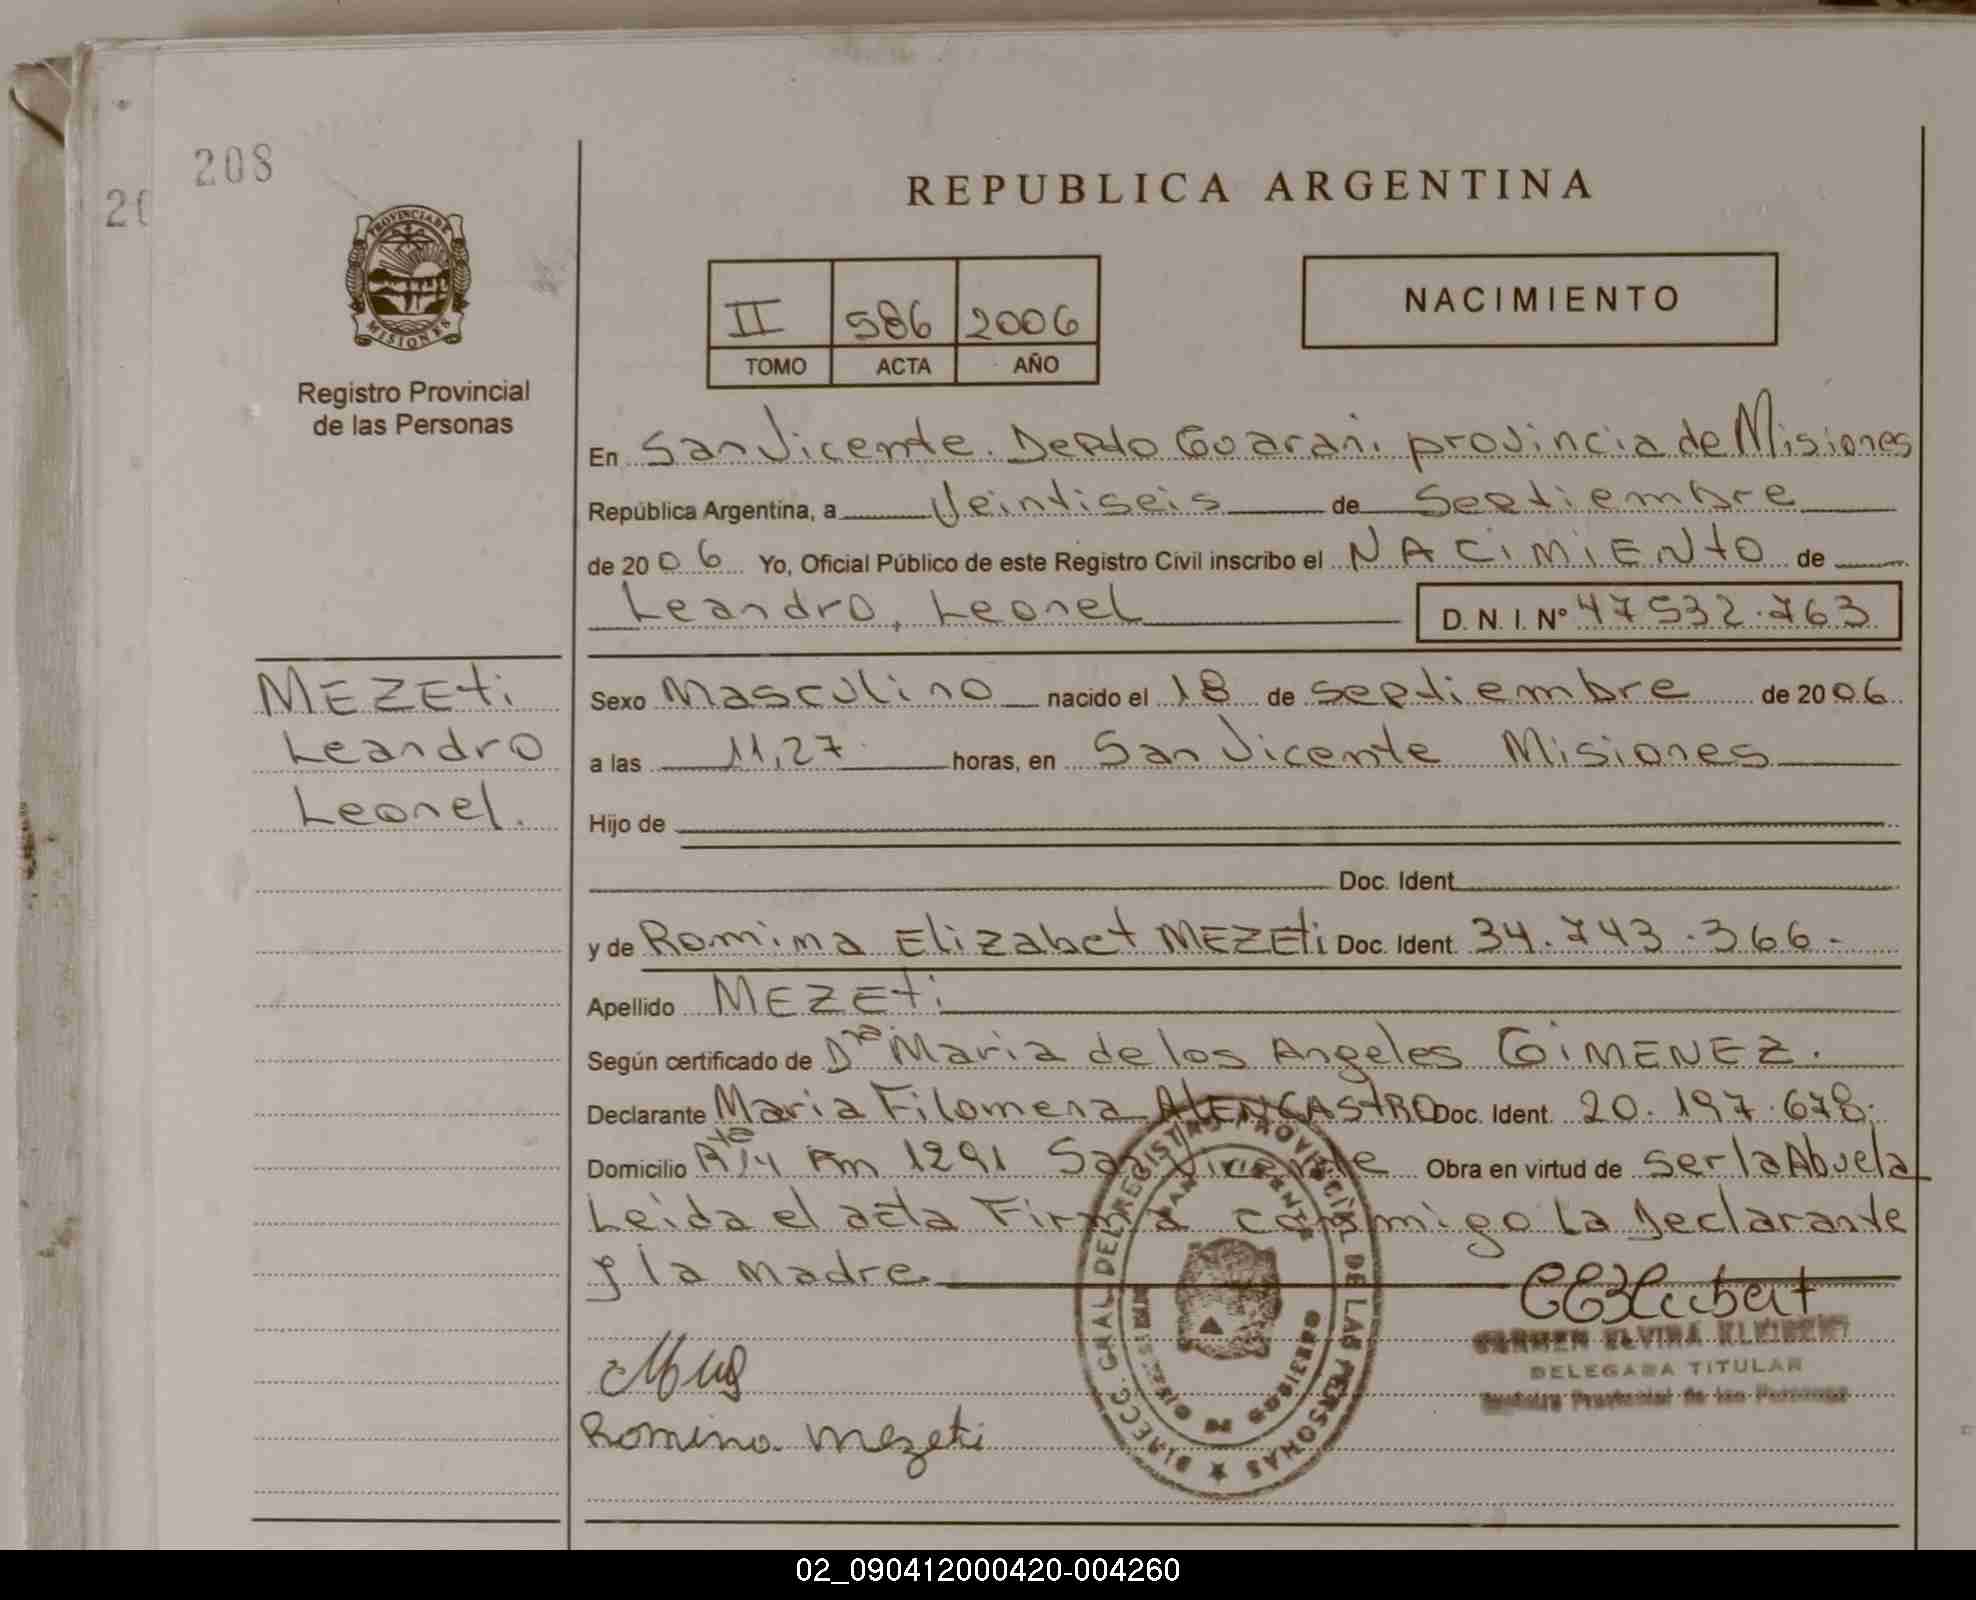 208
20
PROVINCIA DE
MISIONES
Registro Provincial
de las Personas
REPUBLICA ARGENTINA
II 586 2006
TOMO ACTA AÑO
NACIMIENTO
En San Vicente. Depto Guarani. provincia de Misiones
República Argentina, a Veintiseis de Septiembre
de 20 06 Yo, Oficial Público de este Registro Civil inscribo el NACIMIENTO de
Leandro, Leonel
D. N. I. Nº 47532.763
MEZETi
Leandro
Leonel.
Sexo Masculino nacido el 18 de septiembre de 20 06
a las 11,27 horas, en San Vicente Misiones
Hijo de
Doc. Ident.
y de Romina Elizabet MEZETi Doc. Ident. 34.743.366.-
Apellido MEZETi
Según certificado de Dra Maria de los Angeles GiMENEZ.
Declarante Maria Filomena ALENCASTRO Doc. Ident. 20.197.678.
Domicilio Rta 14 Km 1291 San Vicente Obra en virtud de ser la Abuela
Leida el acta Firma conmigo la Declarante
y la madre.
CARMEN ELVIRA KLEIBERT
DELEGADA TITULAR
Registro Provincial de las Personas
Romina mezeti
DIRECC. GRAL. DEL REGISTRO PROVINCIAL DE LAS PERSONAS
SAN VICENTE
MISIONES
02_090412000420-004260